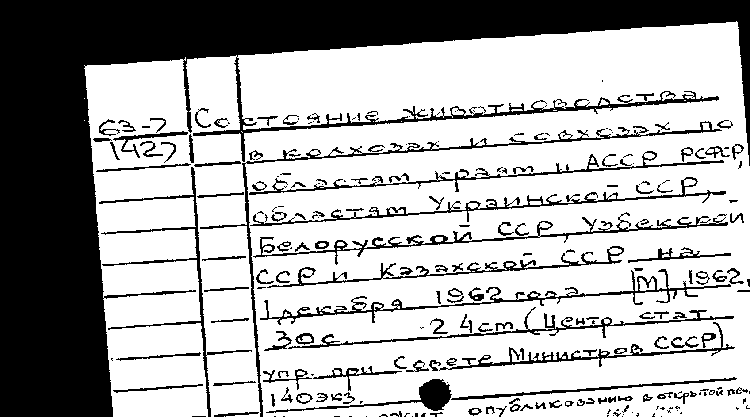 63-7 Состояние животноводства
1427 в колхозах и совхозах по
областям, краям и АССР РСФСР,
областям Украинской ССР,
Белорусской ССР, Узбекской
ССР и Казахской ССР на
1 декабря 1962 года. [М], 1962.
30 с. 24 cm (Центр. стат.
упр. при Совете Министров СССР).
140 экз.
опубликованию в открытой